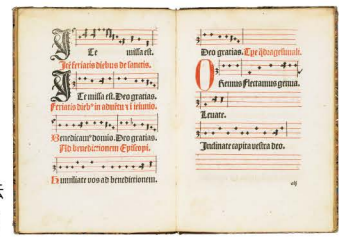 ITe missa est.
Itē feriatis diebus de sanctis.
ITe missa est. Deo gratias.
Feriatis dieb⁹ in aduētu ⁊ i ieiunio.
Benedicam⁹ domino. Deo gratias.
Ad benedictionem Episcopi.
Humiliate vos ad benedictionem.
Deo gratias. Tpe Qdragesimali.
ORemus Flectamus genua.
Leuate.
Inclinate capita vestra deo.